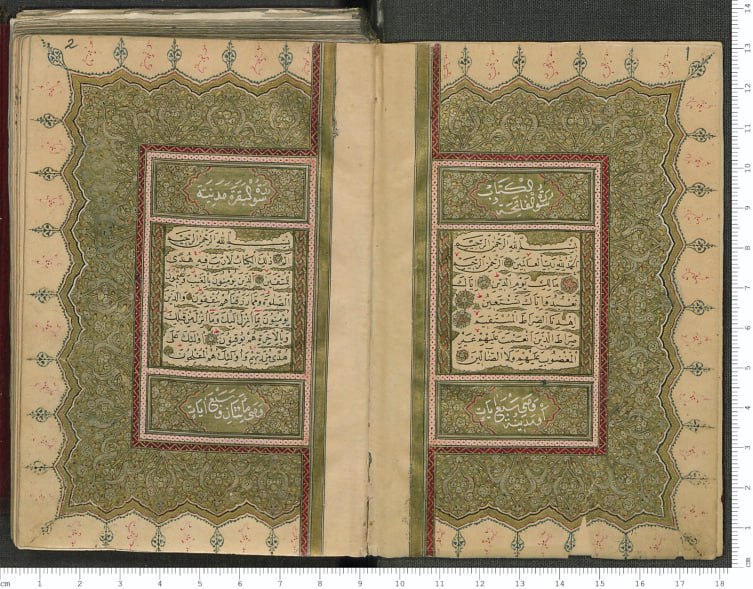 1
سورة فاتحة الكتاب
بسم الله الرحمن الرحيم
الحمد لله رب العالمين الرحمن الرحيم
مالك يوم الدين اياك
نعبد واياك نستعين
اهدنا الصراط المستقيم
صراط الذين انعمت عليهم غير
المغضوب عليهم ولا الضالين
وهي سبع ايات
او مدنية
2
سورة البقرة مدنية
بسم الله الرحمن الرحيم
الم ذلك الكتاب لا ريب فيه هدى
للمتقين الذين يؤمنون بالغيب ويقيمون
الصلوة ومما رزقناهم ينفقون والذين
يؤمنون بما انزل اليك وما انزل من قبلك
وبالاخرة هم يوقنون اولئك على
هدى من ربهم واولئك هم المفلحون
وهي مايتان وسبع ايات
cm 1 2 3 4 5 6 7 8 9 10 11 12 13 14 15 16 17 18